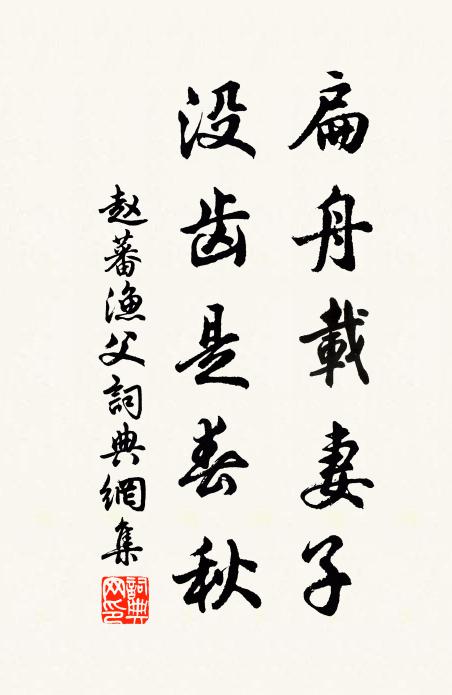 扁舟載妻子
没齿是春秋
赵蕃渔父詞典網集
詞典网印